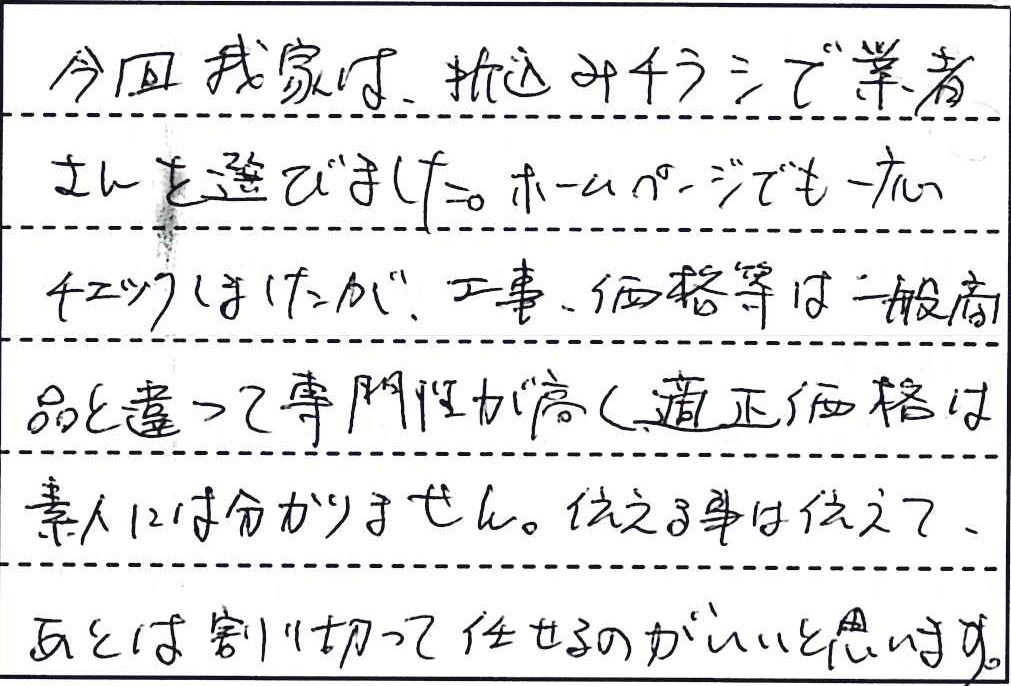 今回我家は、折込みチラシで業者
さんを選びました。ホームページでも一応
チェックしましたが、工事、価格等は一般商
品と違って専門性が高く、適正価格は
素人には分かりません。伝える事は伝えて、
あとは割り切って任せるのがいいと思います。